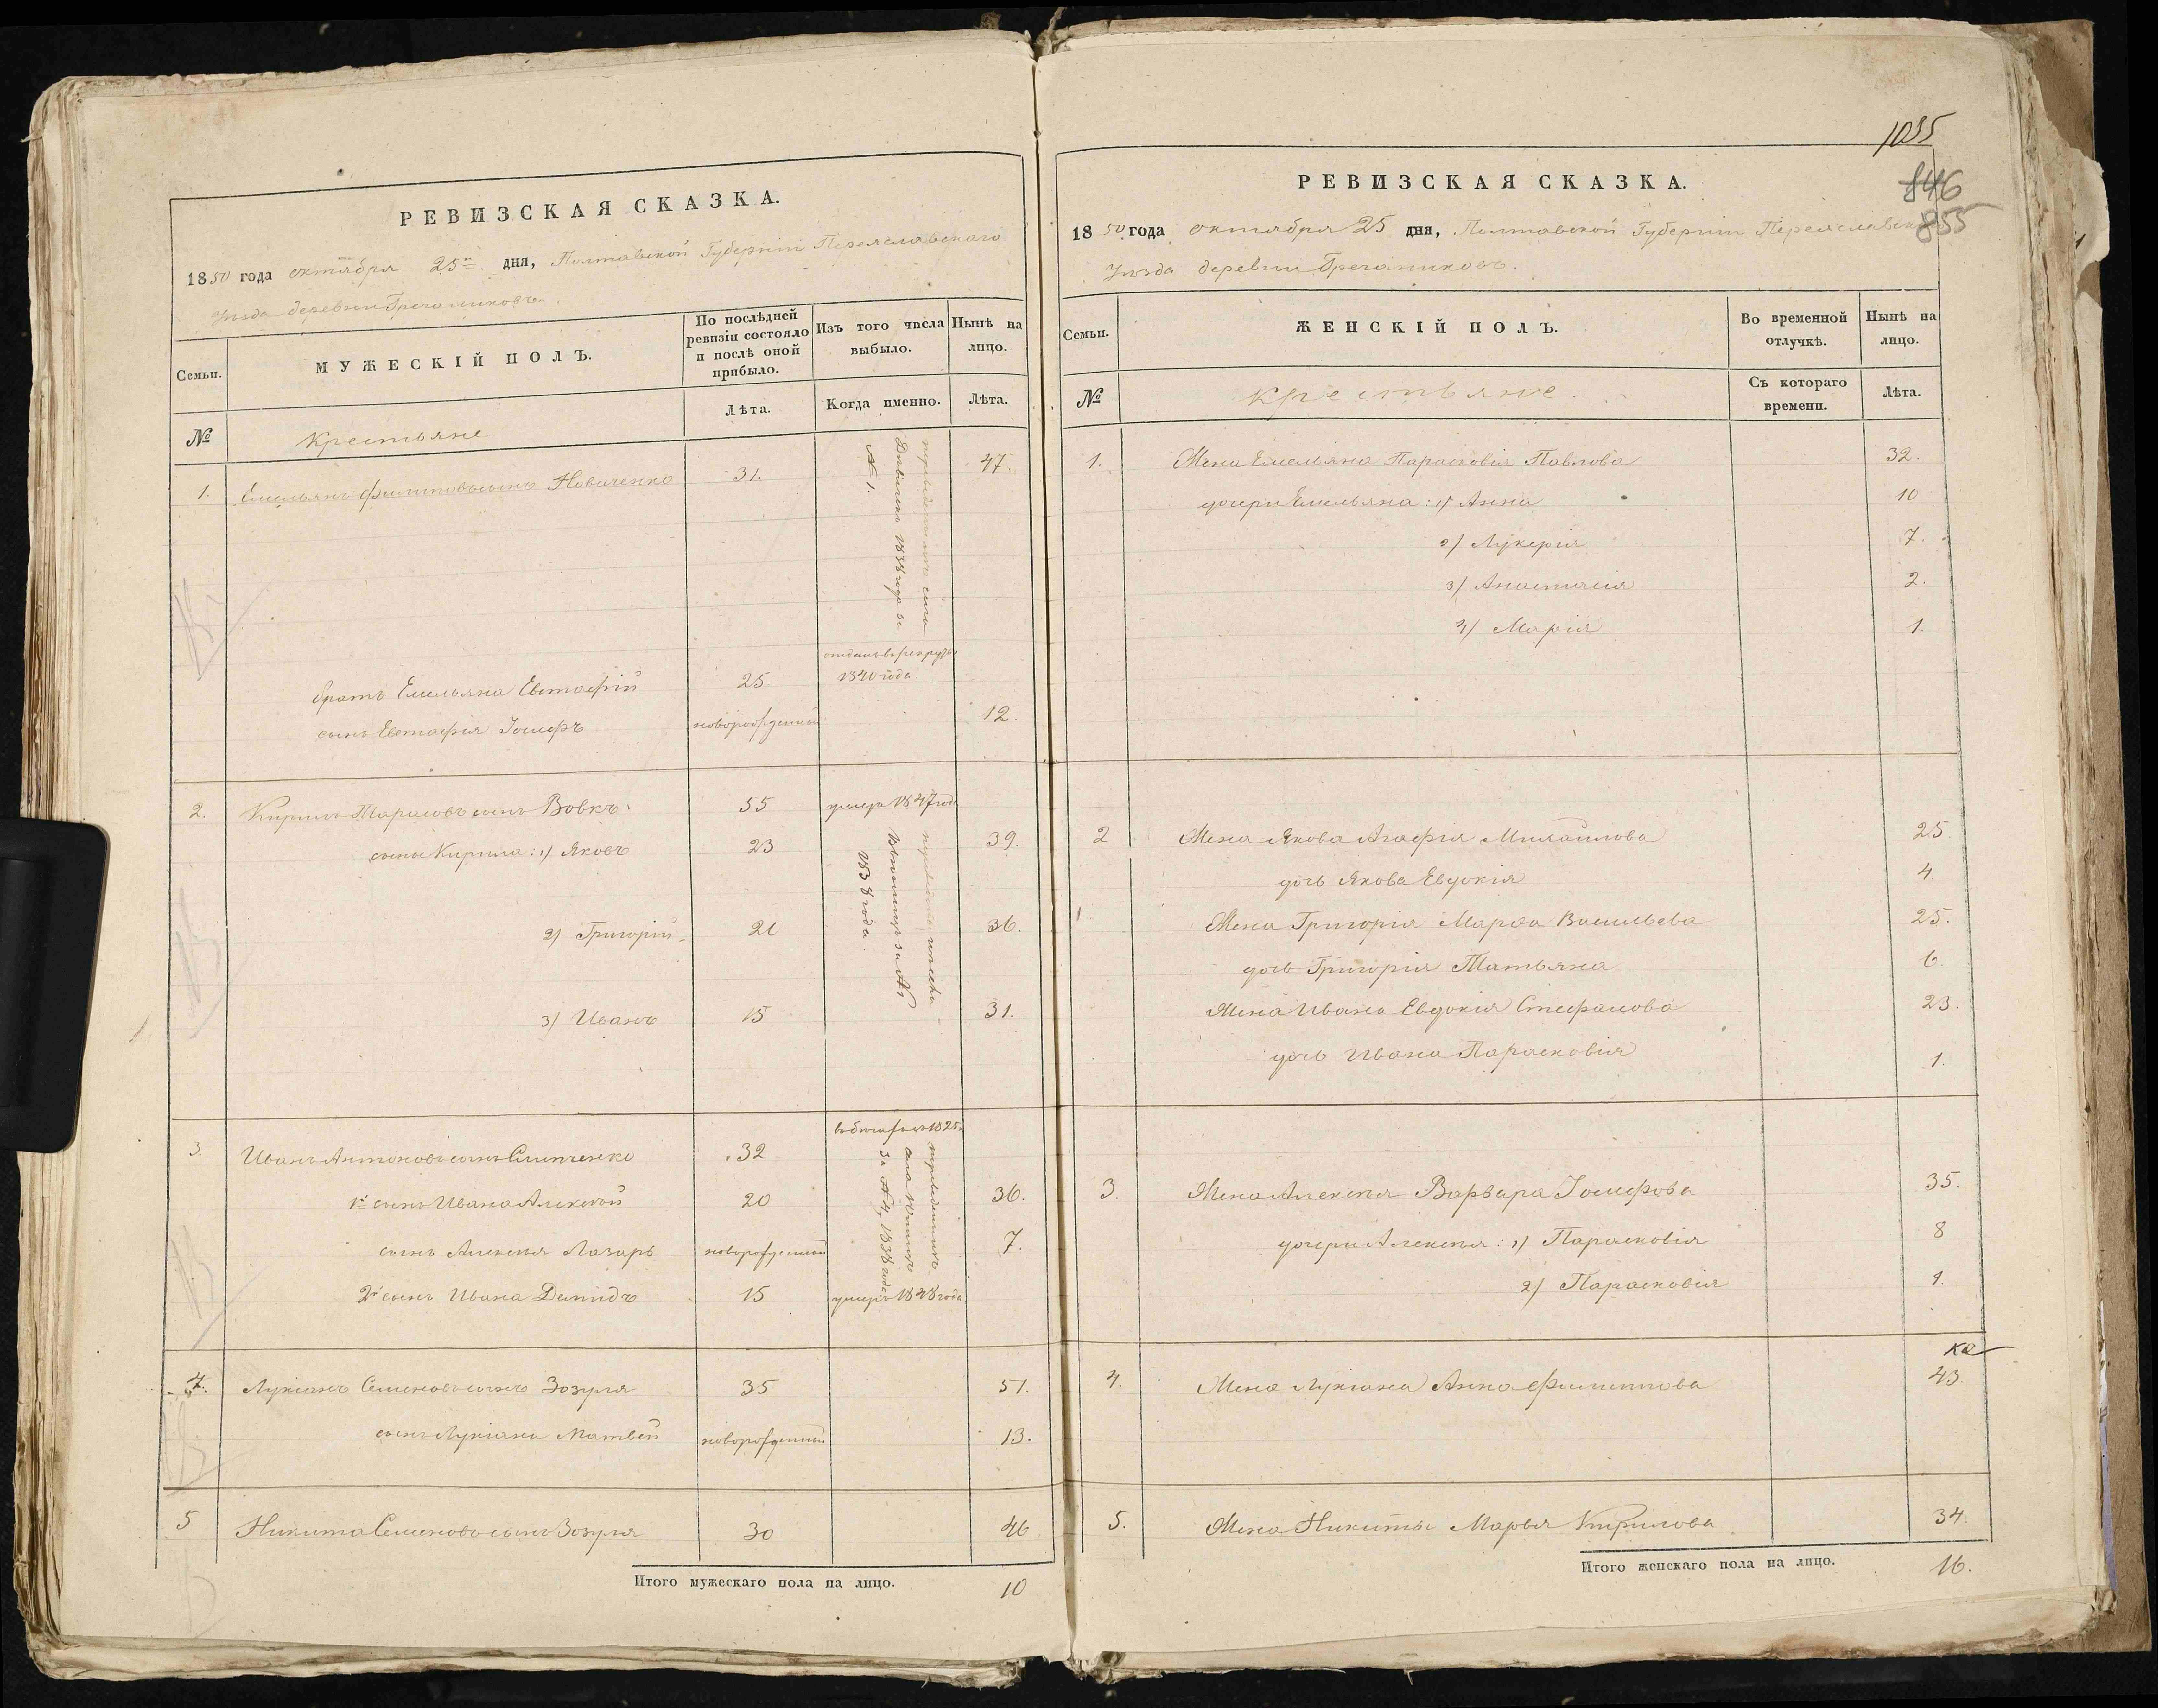 РЕВИЗСКАЯ СКАЗКА.
1850 года октября 25го дня, Полтавской Губернии Переяславскаго
Уезда деревни Гречаниковъ.
Семьи.
МУЖЕСКІЙ ПОЛЪ.
По послѣдней ревизіи состояло и послѣ оной прибыло.
Изъ того числа выбыло.
Нынѣ на лицо.
Лѣта.
Когда именно.
Лѣта.
№
Крестьяне
1. Емельянъ Филиповъ сынъ 31. 47.
№ 1. 1838 года за
братъ Емельяна Евстафій 25. отданъ въ рекруты 1840 года
сынъ Евстафія Іосифъ новорожденный 12.
2. Кирилъ Тарасовъ сынъ Вовкъ. 55 умеръ 1847 года
сыны Кирила: 1) Яковъ 23 39.
2) Григорій 21 36.
3) Иванъ 15 31.
1838 года
3. Иванъ Антоновъ сынъ 32 въ бегахъ съ 1825
1й сынъ Ивана Алексей 20 36.
сынъ Алексея Лазарь новорожденный 7.
за № 4, 1838 года
2й сынъ Ивана Демидъ 15 умеръ 1848 года
4. Лукіанъ Семеновъ сынъ Зозуля 35 51.
сынъ Лукіана Матвей новорожденный 13.
5 Никита Семеновъ сынъ Зозуля 30 46
Итого мужескаго пола на лицо. 10
1035
846
855
РЕВИЗСКАЯ СКАЗКА.
1850 года октября 25 дня, Полтавской Губерніи Переяславскаго
Уезда деревни Гречаниковъ.
Семьи.
ЖЕНСКІЙ ПОЛЪ.
Во временной отлучкѣ.
Нынѣ на лицо.
№
Крестьяне.
Съ котораго времени.
Лѣта.
1. Жена Емельяна Парасковія Павлова 32.
дочери Емельяна: 1) Анна 10
2) Лукерія 7.
3) Анастасія 2.
4) Марія 1.
2 Жена Якова Агафія Михайлова 25.
дочь Якова Евдокія 4.
Жена Григорія Марфа Васильева 25.
дочь Григорія Татьяна 6.
Жена Ивана Евдокія Стефанова 23.
дочь Ивана Парасковія 1.
3. Жена Алексея Варвара Іосифова 35.
дочери Алексея: 1) Парасковія 8
2) Парасковія 1.
4. Жена Лукіана Анна Филиппова 43.
5. Жена Никиты Марья Кирилова 34.
Итого женскаго пола на лицо. 16.